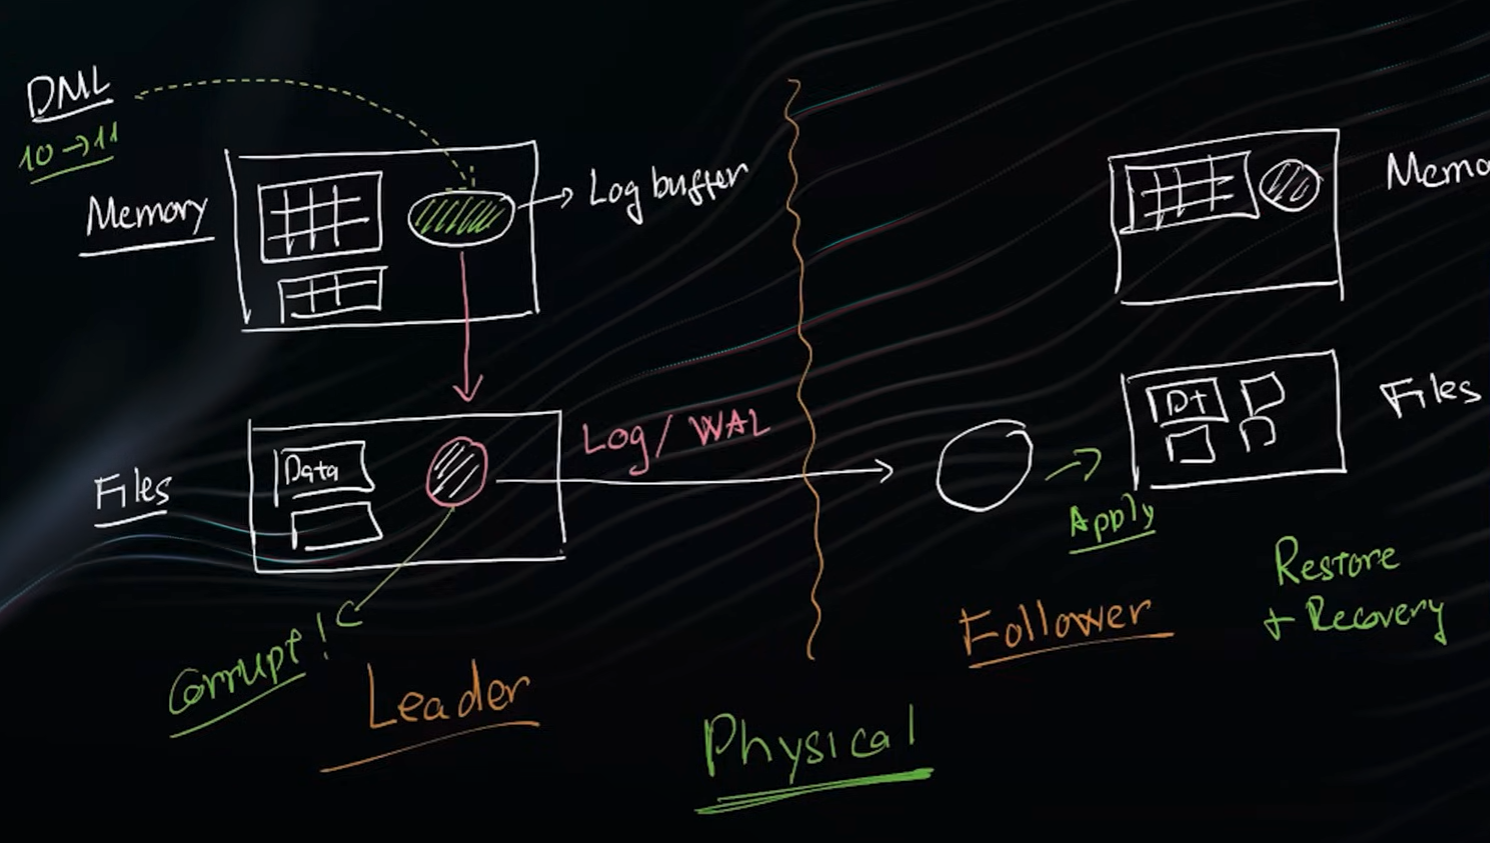 DML
10→11
Memory
Log buffer
Files
Data
Log / WAL
Corrupt!
Leader
Memo
Dt
Files
Apply
Follower
Restore
+ Recovery
Physical